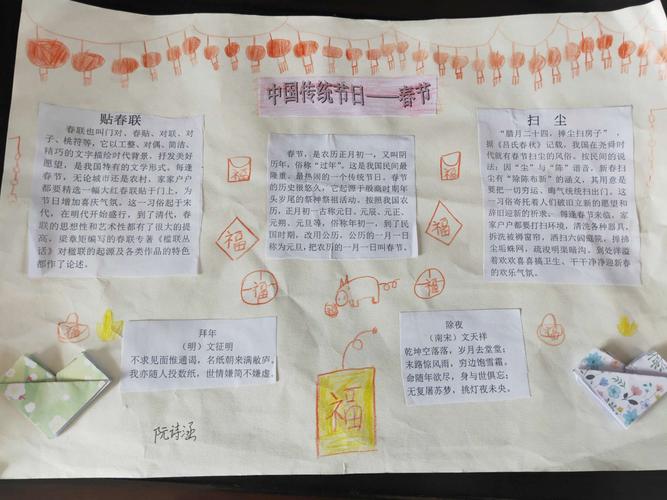 中国传统节日——春节
贴春联
春联也叫门对、春贴、对联、对
子、桃符等，它以工整、对偶、简洁、
精巧的文字描绘时代背景，抒发美好
愿望，是我国特有的文学形式。每逢
春节，无论城市还是农村，家家户户
都要精选一幅大红春联贴于门上，为
节日增加喜庆气氛。这一习俗起于宋
代，在明代开始盛行，到了清代，春
联的思想性和艺术性都有了很大的提
高，梁章矩编写的春联专著《槛联丛
话》对楹联的起源及各类作品的特色
都作了论述。
春节，是农历正月初一，又叫阴
历年，俗称“过年”。这是我国民间最
隆重、最热闹的一个传统节日。春节
的历史很悠久，它起源于殷商时期年
头岁尾的祭神祭祖活动。按照我国农
历，正月初一古称元日、元辰、元正、
元朔、元旦等，俗称年初一，到了民
国时期，改用公历，公历的一月一日
称为元旦，把农历的一月一日叫春节。
扫 尘
“腊月二十四，掸尘扫房子”，
据《吕氏春秋》记载，我国在尧舜时
代就有春节扫尘的风俗。按民间的说
法：因“尘”与“陈”谐音，新春扫
尘有“除陈布新”的涵义，其用意是
要把一切穷运、晦气统统扫出门。这
一习俗寄托着人们破旧立新的愿望和
辞旧迎新的祈求。每逢春节来临，家
家户户都要打扫环境，清洗各种器具，
拆洗被褥窗帘，洒扫六闾庭院，掸拂
尘垢蛛网，疏浚明渠暗沟。到处洋溢
着欢欢喜喜搞卫生、干干净净迎新春
的欢乐气氛。
福
福
福
福
福
拜年
（明）文征明
不求见面惟通谒，名纸朝来满敝庐。
我亦随人投数纸，世情嫌简不嫌虚。
除夜
（南宋）文天祥
乾坤空落落，岁月去堂堂；
末路惊风雨，穷边饱雪霜。
命随年欲尽，身与世俱忘；
无复屠苏梦，挑灯夜未央。
福
阮诗涵